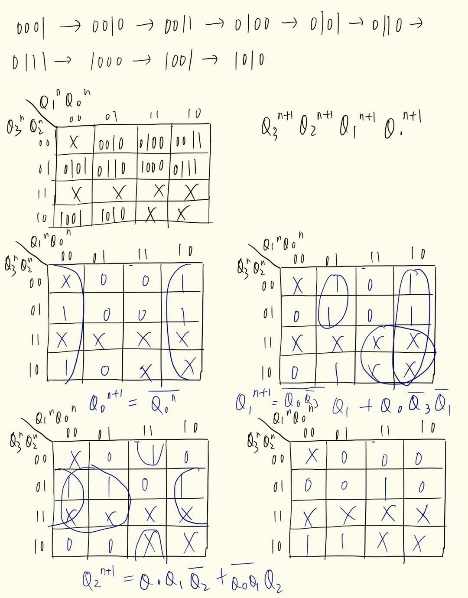 0001 → 0010 → 0011 → 0100 → 0101 → 0110 →
0111 → 1000 → 1001 → 1010
Q₁ⁿ Q₀ⁿ
Q₃ⁿ Q₂ⁿ 00 01 11 10
00 X 0010 0100 0011
01 0101 0110 1000 0111
11 X X X X
10 1001 1010 X X
Q₃ⁿ⁺¹ Q₂ⁿ⁺¹ Q₁ⁿ⁺¹ Q₀ⁿ⁺¹
Q₁ⁿ Q₀ⁿ
Q₃ⁿ Q₂ⁿ 00 01 11 10
00 X 0 0 1
01 1 0 0 1
11 X X X X
10 1 0 X X
Q₀ⁿ⁺¹ = Q̅₀ⁿ
Q₁ⁿ Q₀ⁿ
Q₃ⁿ Q₂ⁿ 00 01 11 10
00 X 1 0 1
01 0 1 0 1
11 X X X X
10 0 1 X X
Q₁ⁿ⁺¹ = \overline{Q₀Q₃} Q₁ + Q₀ Q̅₃ Q̅₁
Q₁ⁿ Q₀ⁿ
Q₃ⁿ Q₂ⁿ 00 01 11 10
00 X 0 1 0
01 1 1 0 1
11 X X X X
10 0 0 X X
Q₂ⁿ⁺¹ = Q₀ Q₁ Q̅₂ + \overline{Q₀Q₁} Q₂
Q₁ⁿ Q₀ⁿ
Q₃ⁿ Q₂ⁿ 00 01 11 10
00 X 0 0 0
01 0 0 1 0
11 X X X X
10 1 1 X X